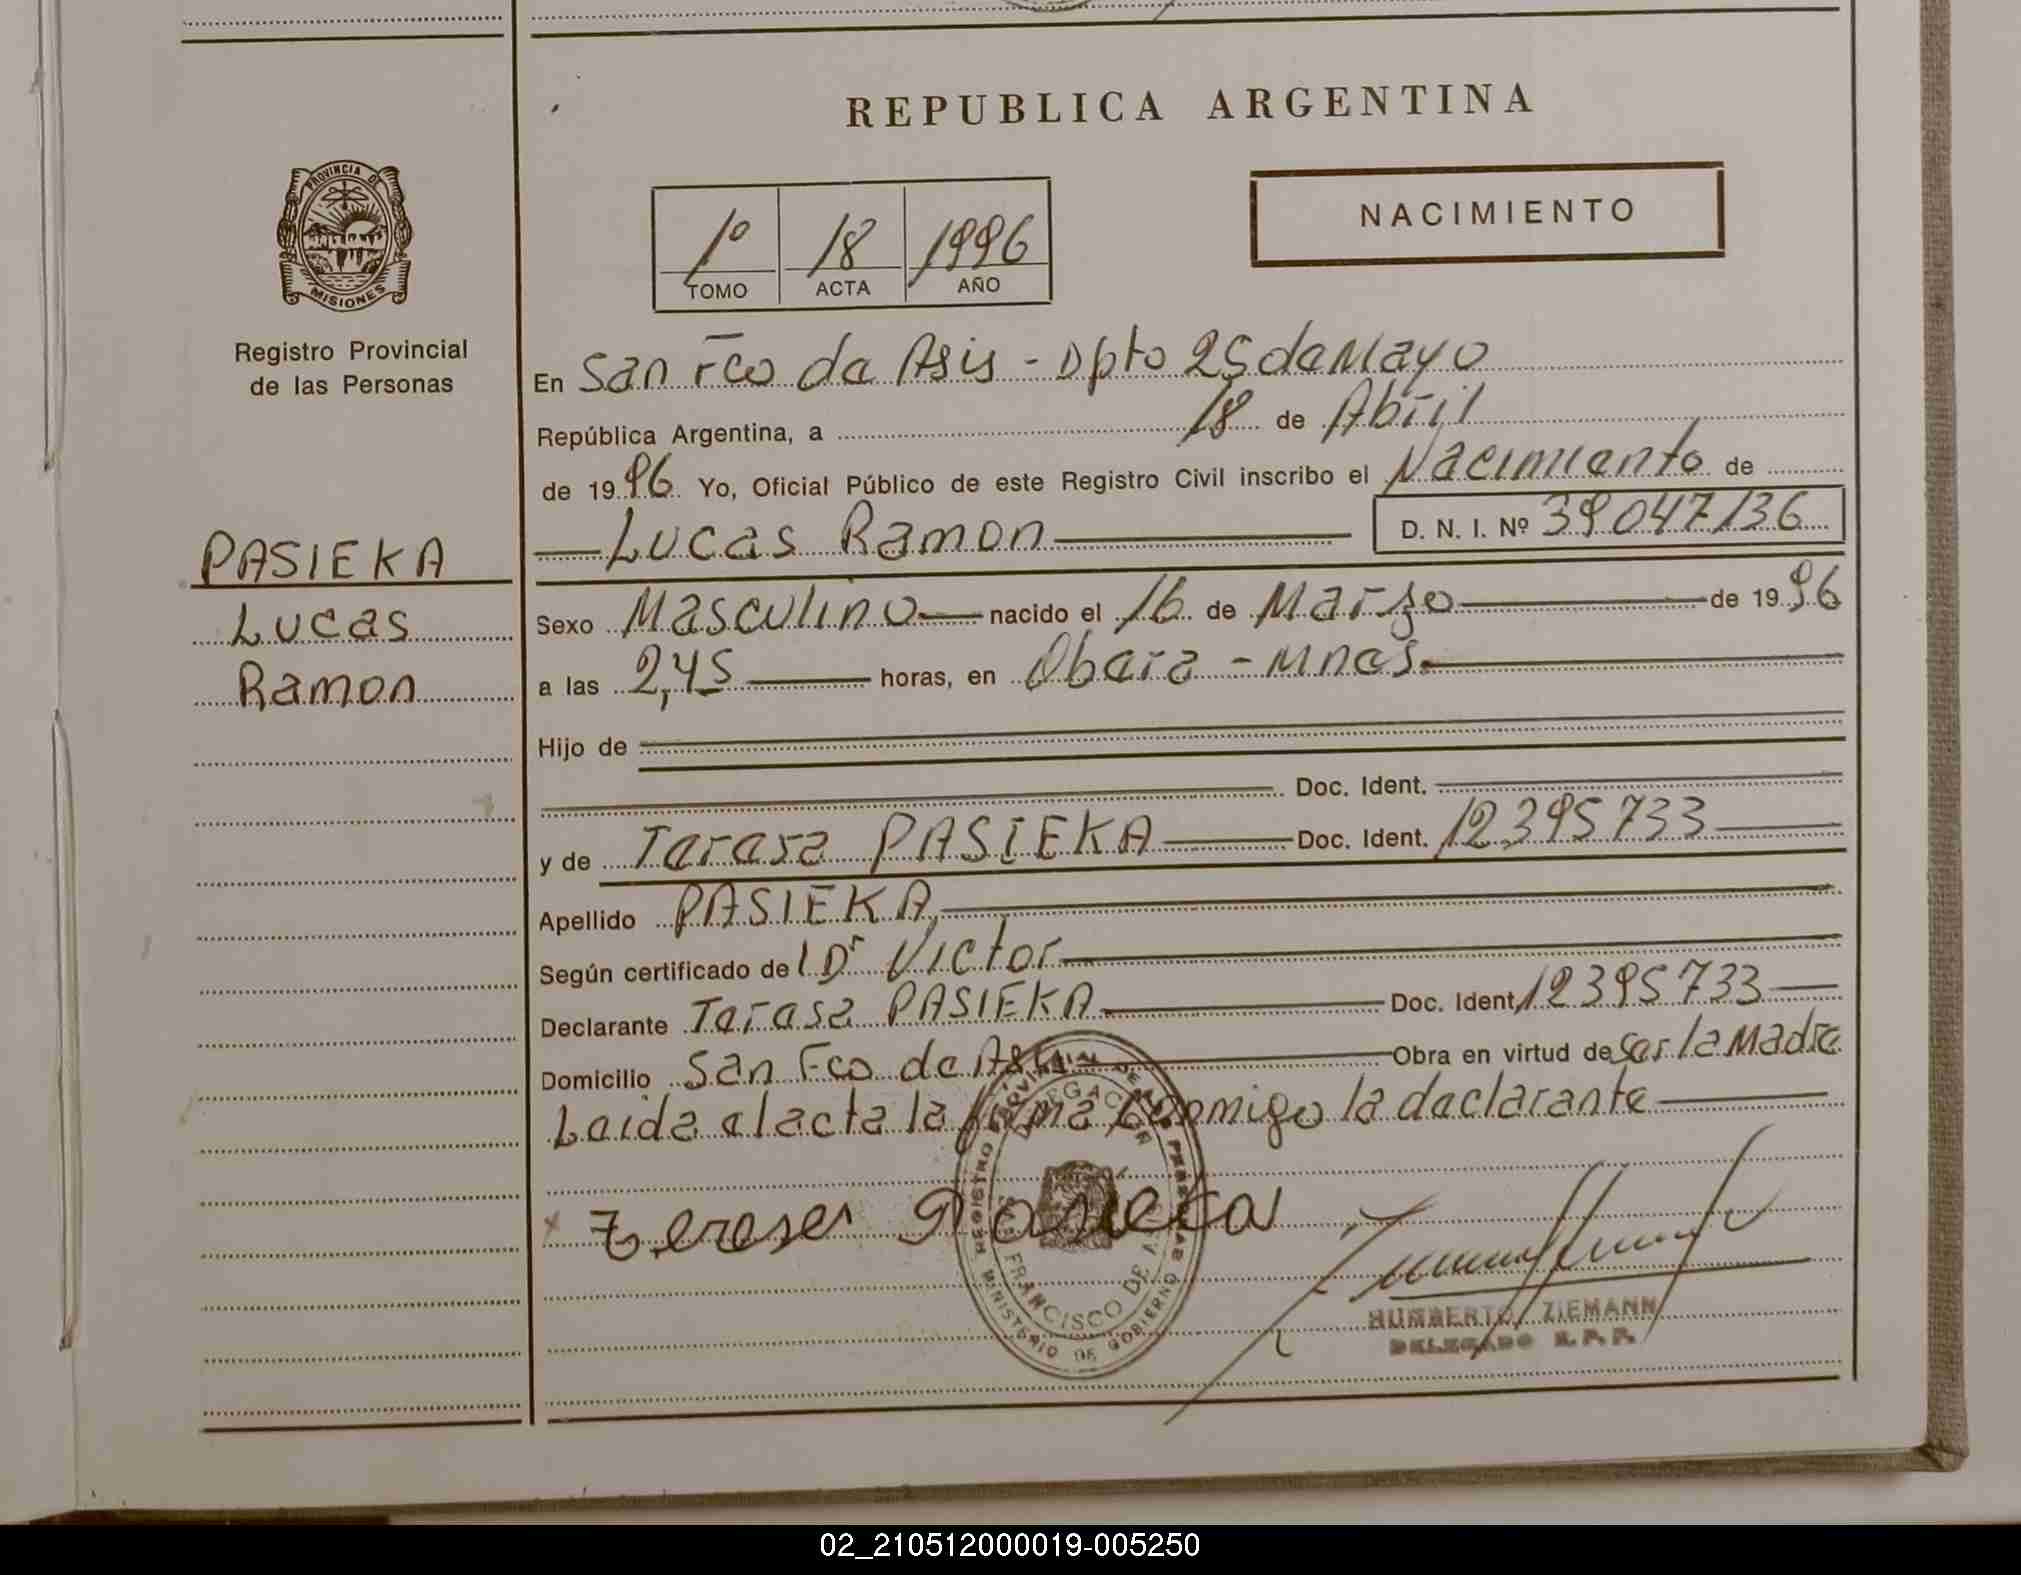 REPUBLICA ARGENTINA
PROVINCIA DE
MISIONES
Registro Provincial
de las Personas
NACIMIENTO
1º 18 1996
TOMO ACTA AÑO
En San Fco de Asis - Dpto 25 de Mayo
República Argentina, a 18 de Abril
de 1996 Yo, Oficial Público de este Registro Civil inscribo el Nacimiento de
Lucas Ramon D. N. I. Nº 39047136
PASIEKA
Lucas
Ramon
Sexo Masculino nacido el 16 de Marzo de 1996
a las 2,45 horas, en Obera - Mnes.
Hijo de
Doc. Ident.
y de Teresa PASIEKA Doc. Ident. 12395733
Apellido PASIEKA
Según certificado del Dr Victor
Declarante Teresa PASIEKA Doc. Ident. 12395733
Domicilio San Fco de Asis Obra en virtud de ser la Madre
Leida el acta la firma conmigo la declarante
Teresa Pasieka
REGISTRO PROVINCIAL DE LAS PERSONAS
DELEGACION
FRANCISCO DE ASIS
MINISTERIO DE GOBIERNO
HUMBERTO ZIEMANN
DELEGADO R. P. P.
02_210512000019-005250